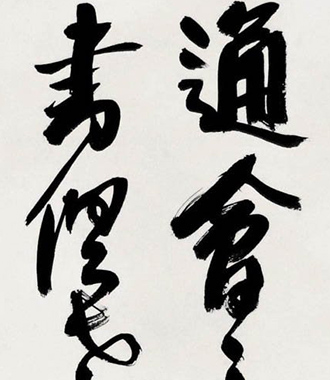 通會之
書俱老